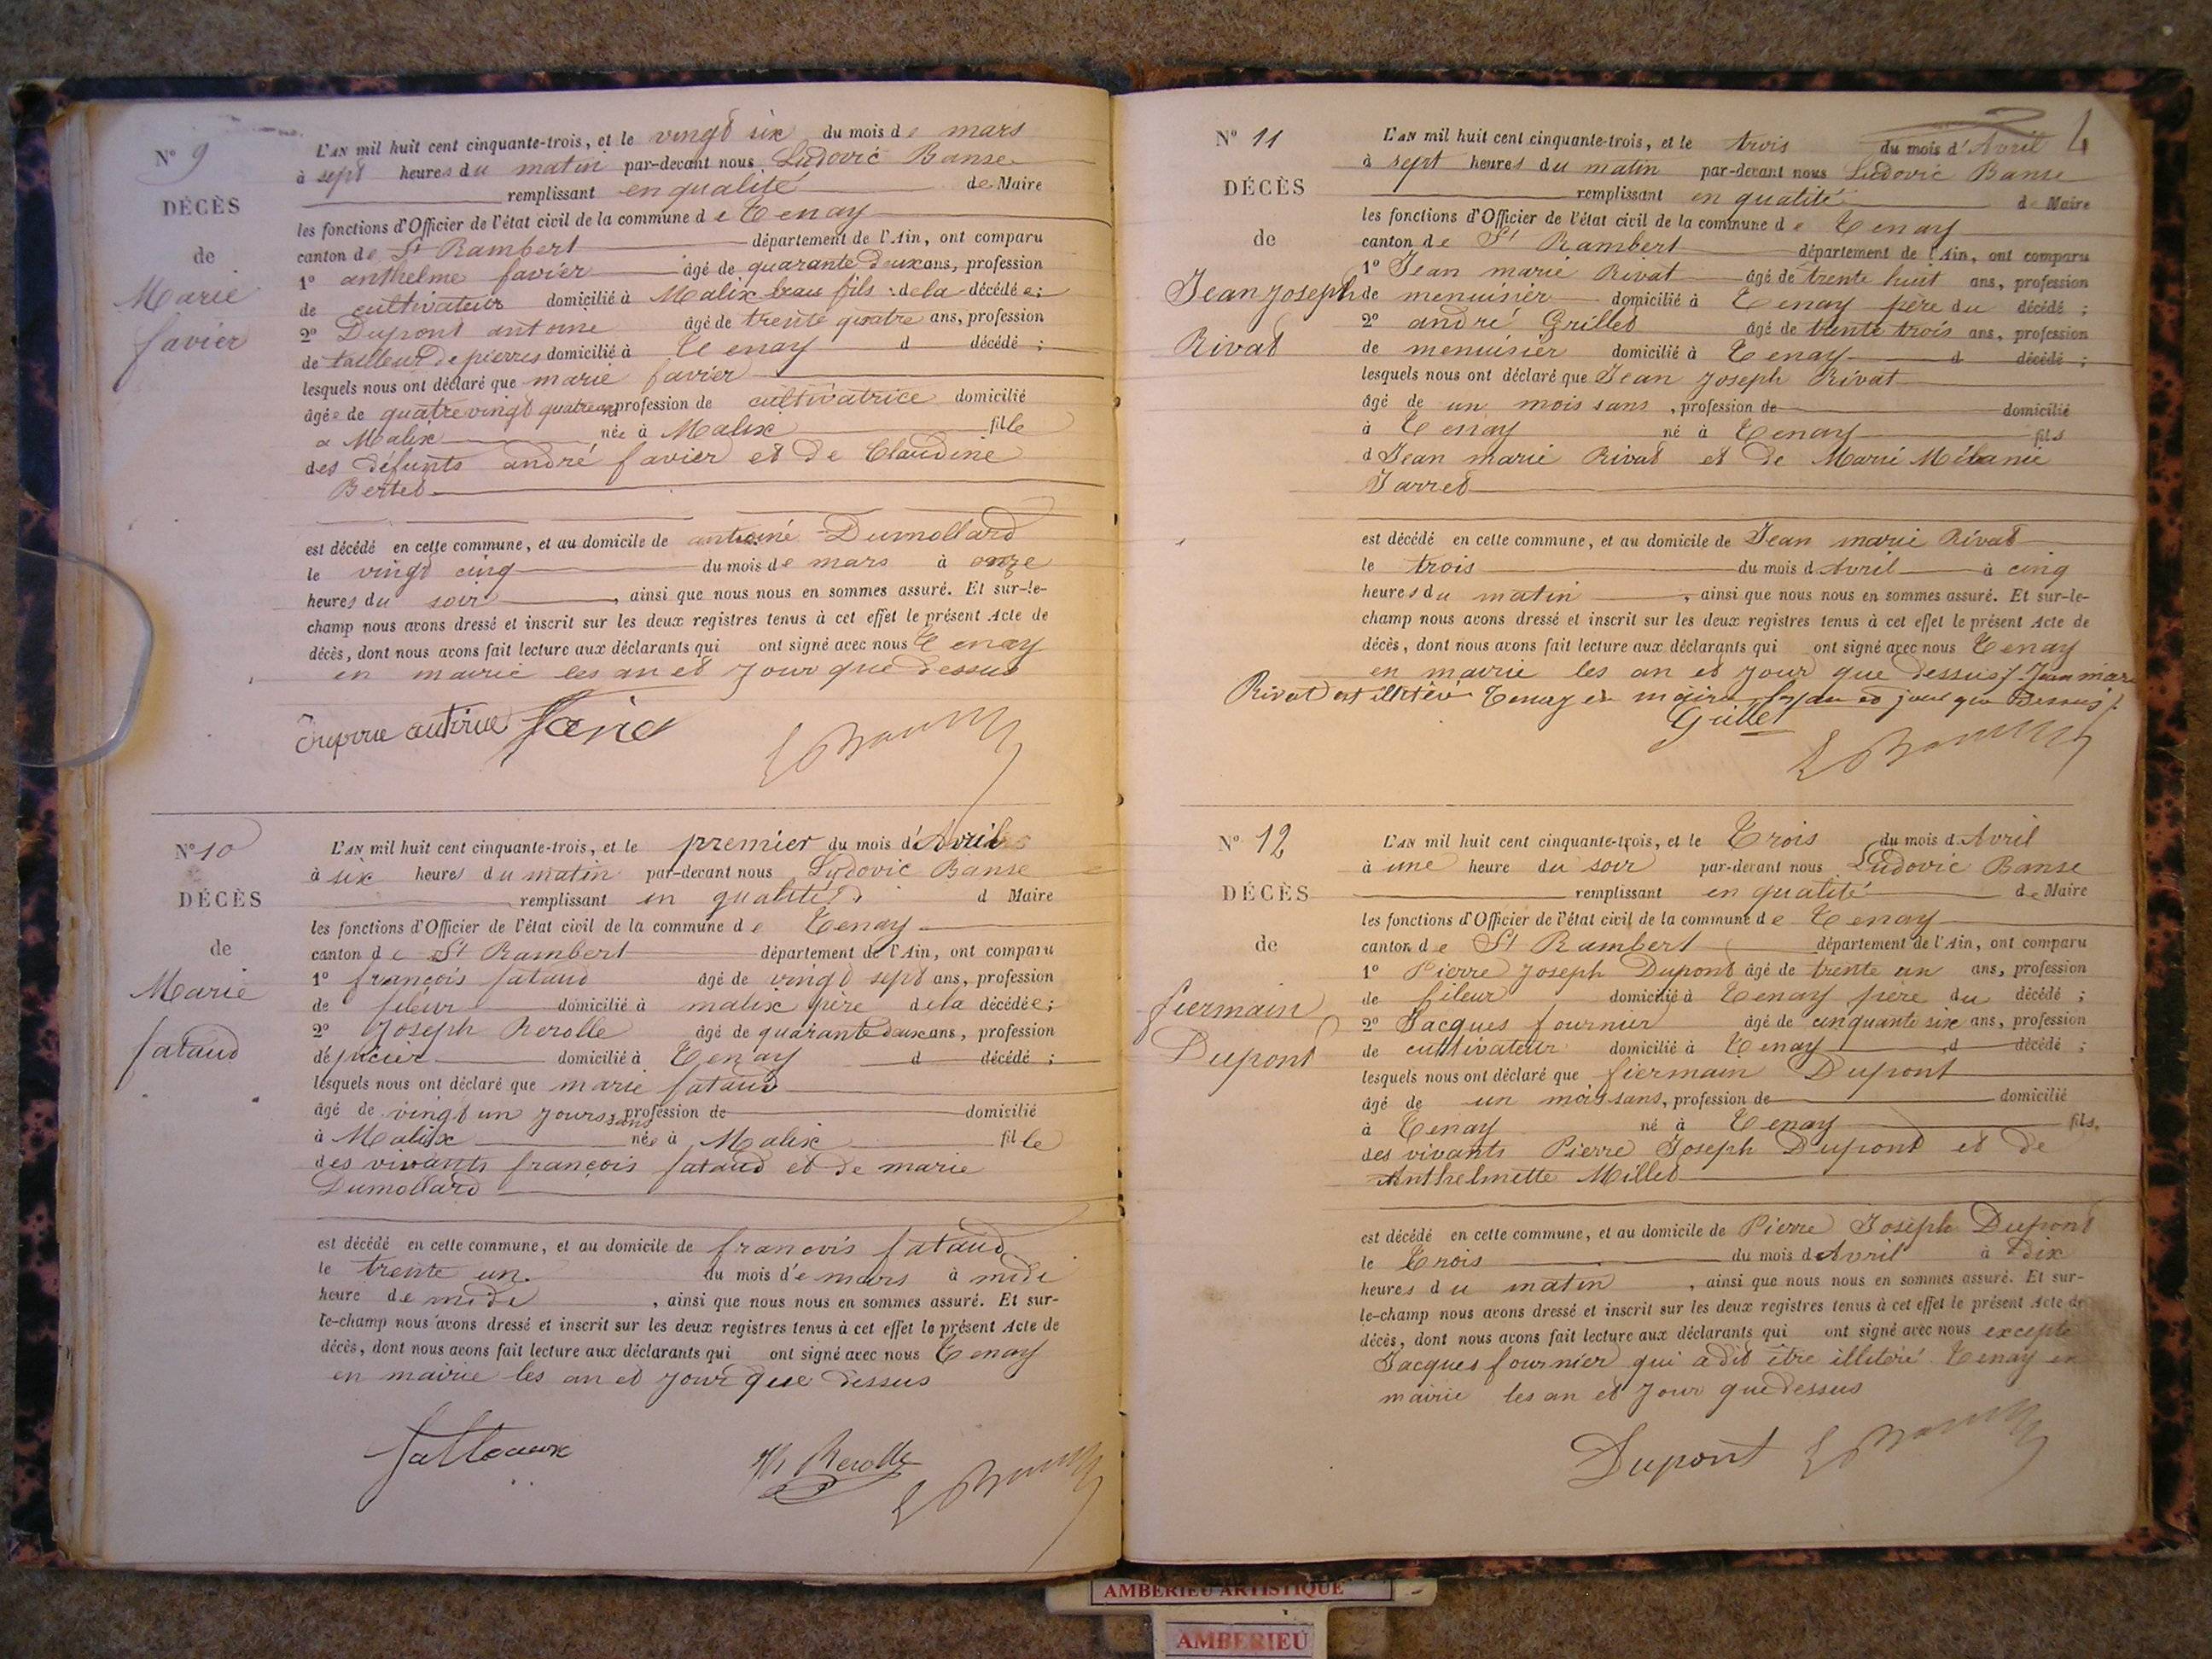 N° 9
DÉCÈS
de
Marie
favier
L'AN mil huit cent cinquante-trois, et le vingt six du mois de mars
à sept heures du matin par-devant nous Ludovic Banse
remplissant en qualité de Maire
les fonctions d'Officier de l'état civil de la commune de Tenay
canton de St Rambert département de l'Ain, ont comparu
1° anthelme favier âgé de quarante deux ans, profession
de cultivateur domicilié à Malix beau fils de la décédée;
2° Dupont antoine âgé de trente quatre ans, profession
de tailleur de pierres domicilié à Tenay d décédé;
lesquels nous ont déclaré que marie favier
âgée de quatre vingt quatre ans profession de cultivatrice domicilié
a Malix née à Malix fille
des défunts andré favier et de Claudine
Bertet
est décédé en cette commune, et au domicile de antoine Dumollard
le vingt cinq du mois de mars à onze
heures du soir, ainsi que nous nous en sommes assuré. Et sur-le-
champ nous avons dressé et inscrit sur les deux registres tenus à cet effet le présent Acte de
décès, dont nous avons fait lecture aux déclarants qui ont signé avec nous Tenay
en mairie les an et jour que dessus
N° 10
DÉCÈS
de
Marie
fataud
L'AN mil huit cent cinquante-trois, et le premier du mois d'Avril
à six heures du matin par-devant nous Ludovic Banse
remplissant en qualité d Maire
les fonctions d'Officier de l'état civil de la commune de Tenay
canton de St Rambert département de l'Ain, ont comparu
1° françois fataud âgé de vingt sept ans, profession
de fileur domicilié à malix père de la décédée;
2° Joseph Rerolle âgé de quarante deux ans, profession
d'épicier domicilié à Tenay d décédé;
lesquels nous ont déclaré que marie fataud
âgé de vingt un jours sans profession de domicilié
à Malix née à Malix fille
des vivants françois fataud et de marie
Dumollard
est décédé en cette commune, et au domicile de francois fataud
le trente un du mois de mars à midi
heure de midi, ainsi que nous nous en sommes assuré. Et sur-
le-champ nous avons dressé et inscrit sur les deux registres tenus à cet effet le présent Acte de
décès, dont nous avons fait lecture aux déclarants qui ont signé avec nous Tenay
en mairie les an et jour que dessus
Rerolle
4
N° 11
DÉCÈS
de
Jean Joseph
Rivat
L'AN mil huit cent cinquante-trois, et le trois du mois d'Avril
à sept heures du matin par-devant nous Ludovic Banse
remplissant en qualité de Maire
les fonctions d'Officier de l'état civil de la commune de Tenay
canton de St Rambert département de l'Ain, ont comparu
1° Jean marie Rivat âgé de trente huit ans, profession
de menuisier domicilié à Tenay père du décédé;
2° andré Grillet âgé de trente trois ans, profession
de menuisier domicilié à Tenay d décédé;
lesquels nous ont déclaré que Jean Joseph Rivat
âgé de un mois sans, profession de domicilié
à Tenay né à Tenay fils
d Jean marie Rivat et de Marie Mélanie
Jarret
est décédé en cette commune, et au domicile de Jean marie Rivat
le trois du mois d Avril à cinq
heures du matin, ainsi que nous nous en sommes assuré. Et sur-le-
champ nous avons dressé et inscrit sur les deux registres tenus à cet effet le présent Acte de
décès, dont nous avons fait lecture aux déclarants qui ont signé avec nous Tenay
en mairie les an et jour que dessus Jean mar
Rivat est Tenay en mairie an et jour que Dessus
Grillet
N° 12
DÉCÈS
de
fiermain
Dupont
L'AN mil huit cent cinquante-trois, et le Trois du mois d Avril
à une heure du soir par-devant nous Ludovic Banse
remplissant en qualité de Maire
les fonctions d'Officier de l'état civil de la commune de Tenay
canton de St Rambert département de l'Ain, ont comparu
1° Pierre Joseph Dupont âgé de trente un ans, profession
de fileur domicilié à Tenay père du décédé;
2° Jacques fournier âgé de cinquante six ans, profession
de cultivateur domicilié à Tenay d décédé;
lesquels nous ont déclaré que fiermain Dupont
âgé de un mois sans, profession de domicilié
à Tenay né à Tenay fils.
des vivants Pierre Joseph Dupont et de
Anthelmette Millet
est décédé en cette commune, et au domicile de Pierre Joseph Dupont
le Trois du mois d Avril à dix
heures du matin, ainsi que nous nous en sommes assuré. Et sur-
le-champ nous avons dressé et inscrit sur les deux registres tenus à cet effet le présent Acte de
décès, dont nous avons fait lecture aux déclarants qui ont signé avec nous excepté
Jacques fournier qui a dit être illiteré Tenay en
mairie les an et jour que dessus
Dupont
AMBERIEU ARTISTIQUE
AMBERIEU